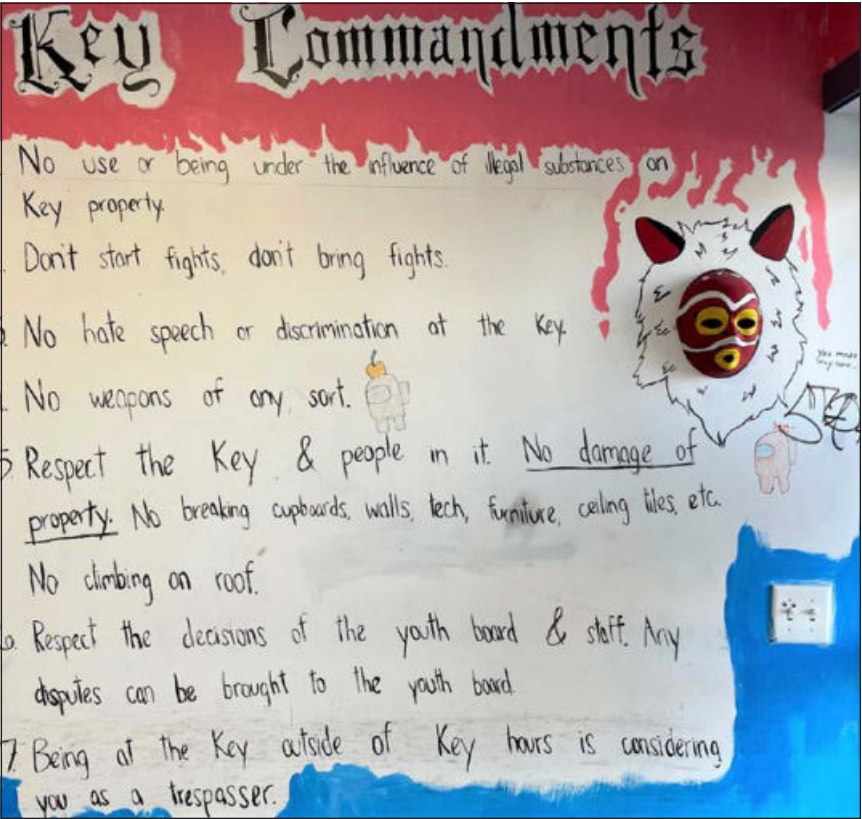 Key Commandments
No use or being under the influence of illegal substances on
Key property.
Don't start fights, don't bring fights.
No hate speech or discrimination at the Key.
No weapons of any sort.
5 Respect the Key & people in it. No damage of
property. No breaking cupboards, walls, tech, furniture, ceiling tiles, etc.
No climbing on roof.
6. Respect the decisions of the youth board & staff. Any
disputes can be brought to the youth board.
7. Being at the Key outside of Key hours is considering
you as a trespasser.
You made